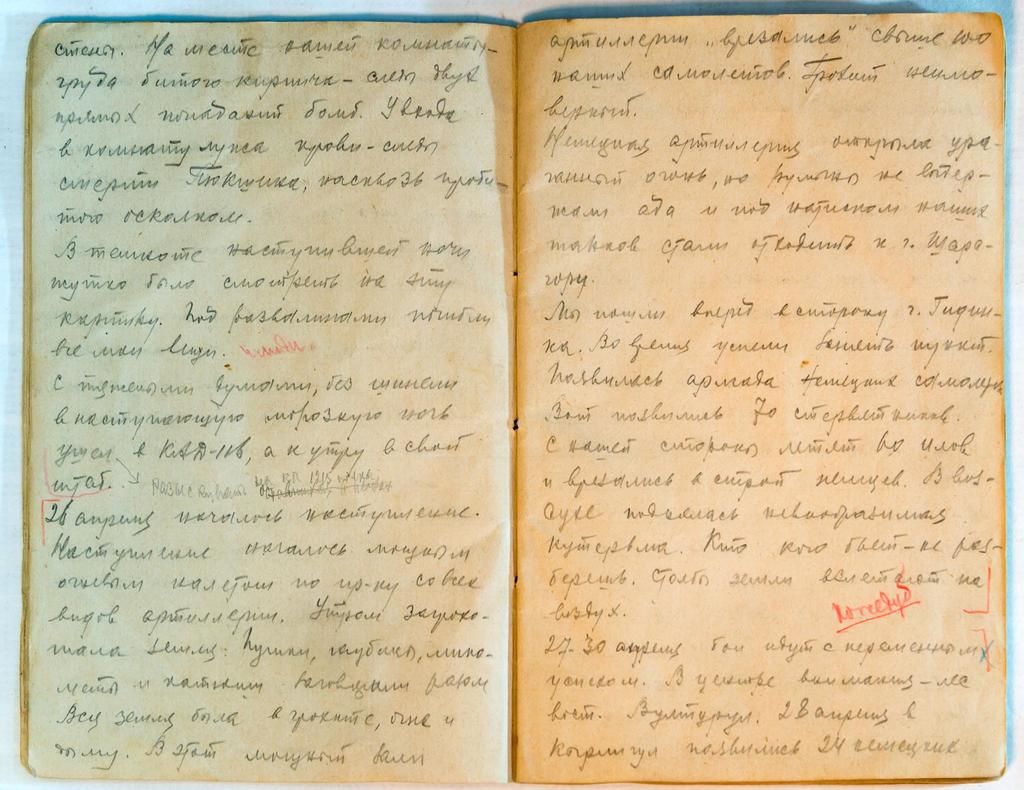 стены. На месте нашей комнаты-
груда битого кирпича – следы двух
прямых попаданий бомб. У входа
в комнату лужа крови – следы
смерти Тюкшика, насквозь проби-
того осколком.
В темноте наступившей ночи
жутко было смотреть на эту
картину. Под развалинами погибли
все мои вещи.
С тяжелыми думами, без шинели
в наступающую морозную ночь
ушел в КАД-118, а к утру в свой
штаб. Разыскивать на КП 1215 полка
26 апреля началось наступление.
Наступление началось мощным
огневым налетом по пр-ку со всех
видов артиллерии. Утром загрохо-
тала земля. Пушки, гаубицы, мино-
меты и катюши заговорили разом
Вся земля была в грохоте, огне и
дыму. В этот мощный залп
артиллерии „врезались" свыше 100
наших самолетов. Грохот неимо-
верный.
Немецкая артиллерия открыла ура-
ганный огонь, но румыны не выдер-
жали ада и под натиском наших
танков стали отходить к г. Шара-
гору.
Мы пошли вперед в сторону г.
Во время успели занять пункт.
Появилась армада немецких самолетов
Вот появились 70 стервятников.
С нашей стороны летят 60 илов
и врезались в строй немцев. В воз-
духе поднялась невообразимая
кутерьма. Кто кого бьет – не раз-
берешь. Столбы земли взлетают на
воздух.
Кожедуб
27-30 апреля бои идут с переменным
успехом. В центре внимания – лес
вост. Вултурул. 28 апреля в
появились 24 немецких